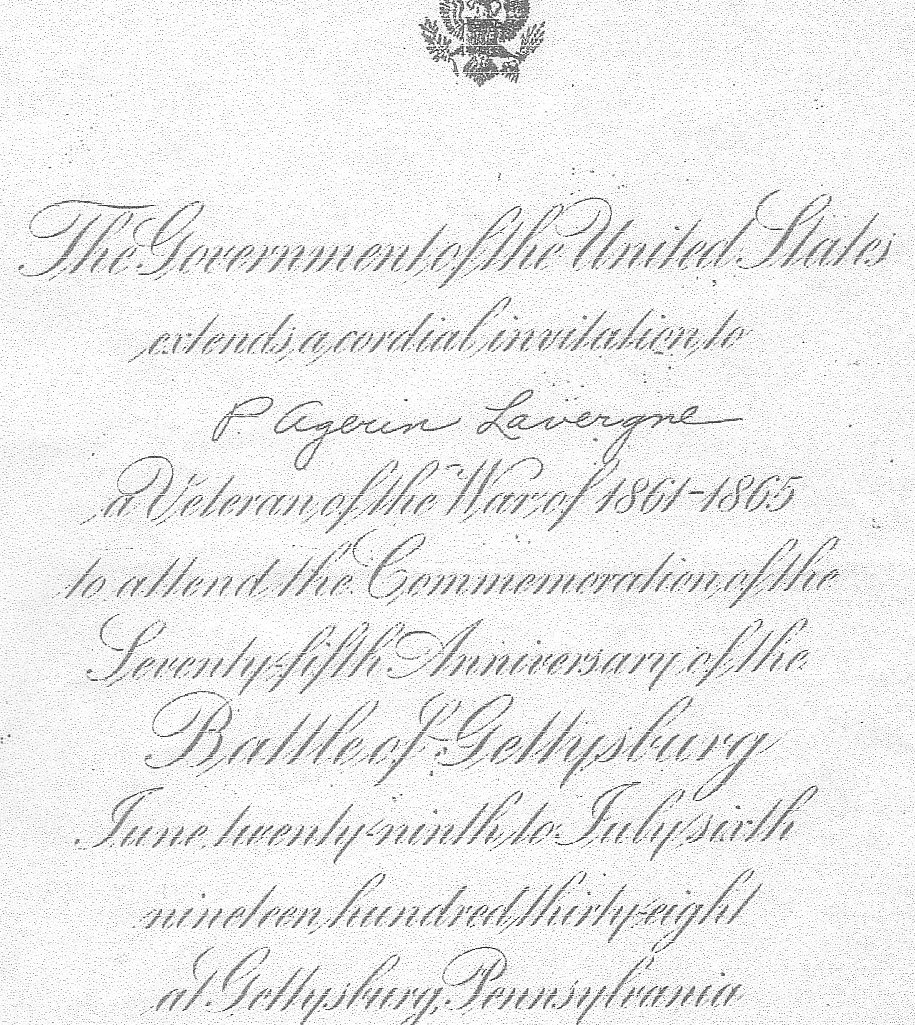 The Government of the United States
extends a cordial invitation to
P. Agerin Lavergne
a Veteran of the War of 1861-1865
to attend the Commemoration of the
Seventy-fifth Anniversary of the
Battle of Gettysburg
June twenty-ninth to July sixth
nineteen hundred thirty-eight
at Gettysburg, Pennsylvania